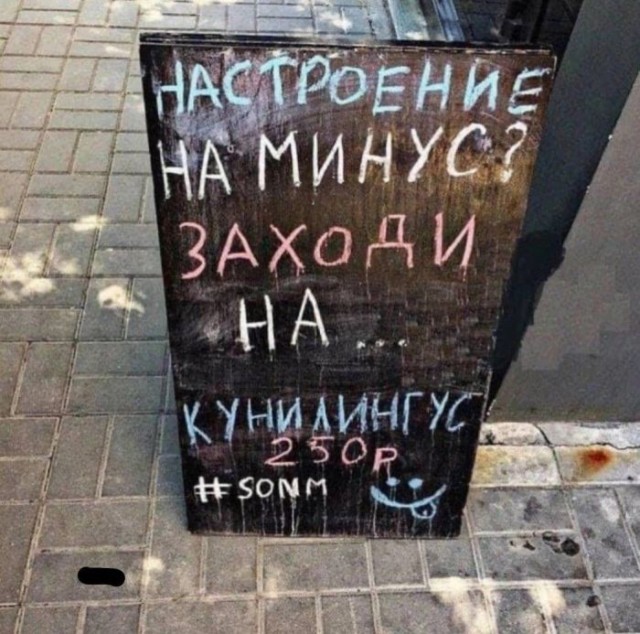 НАСТРОЕНИЕ
НА МИНУС?
ЗАХОДИ
НА ...
КУНИЛИНГУС
250Р
#SONM